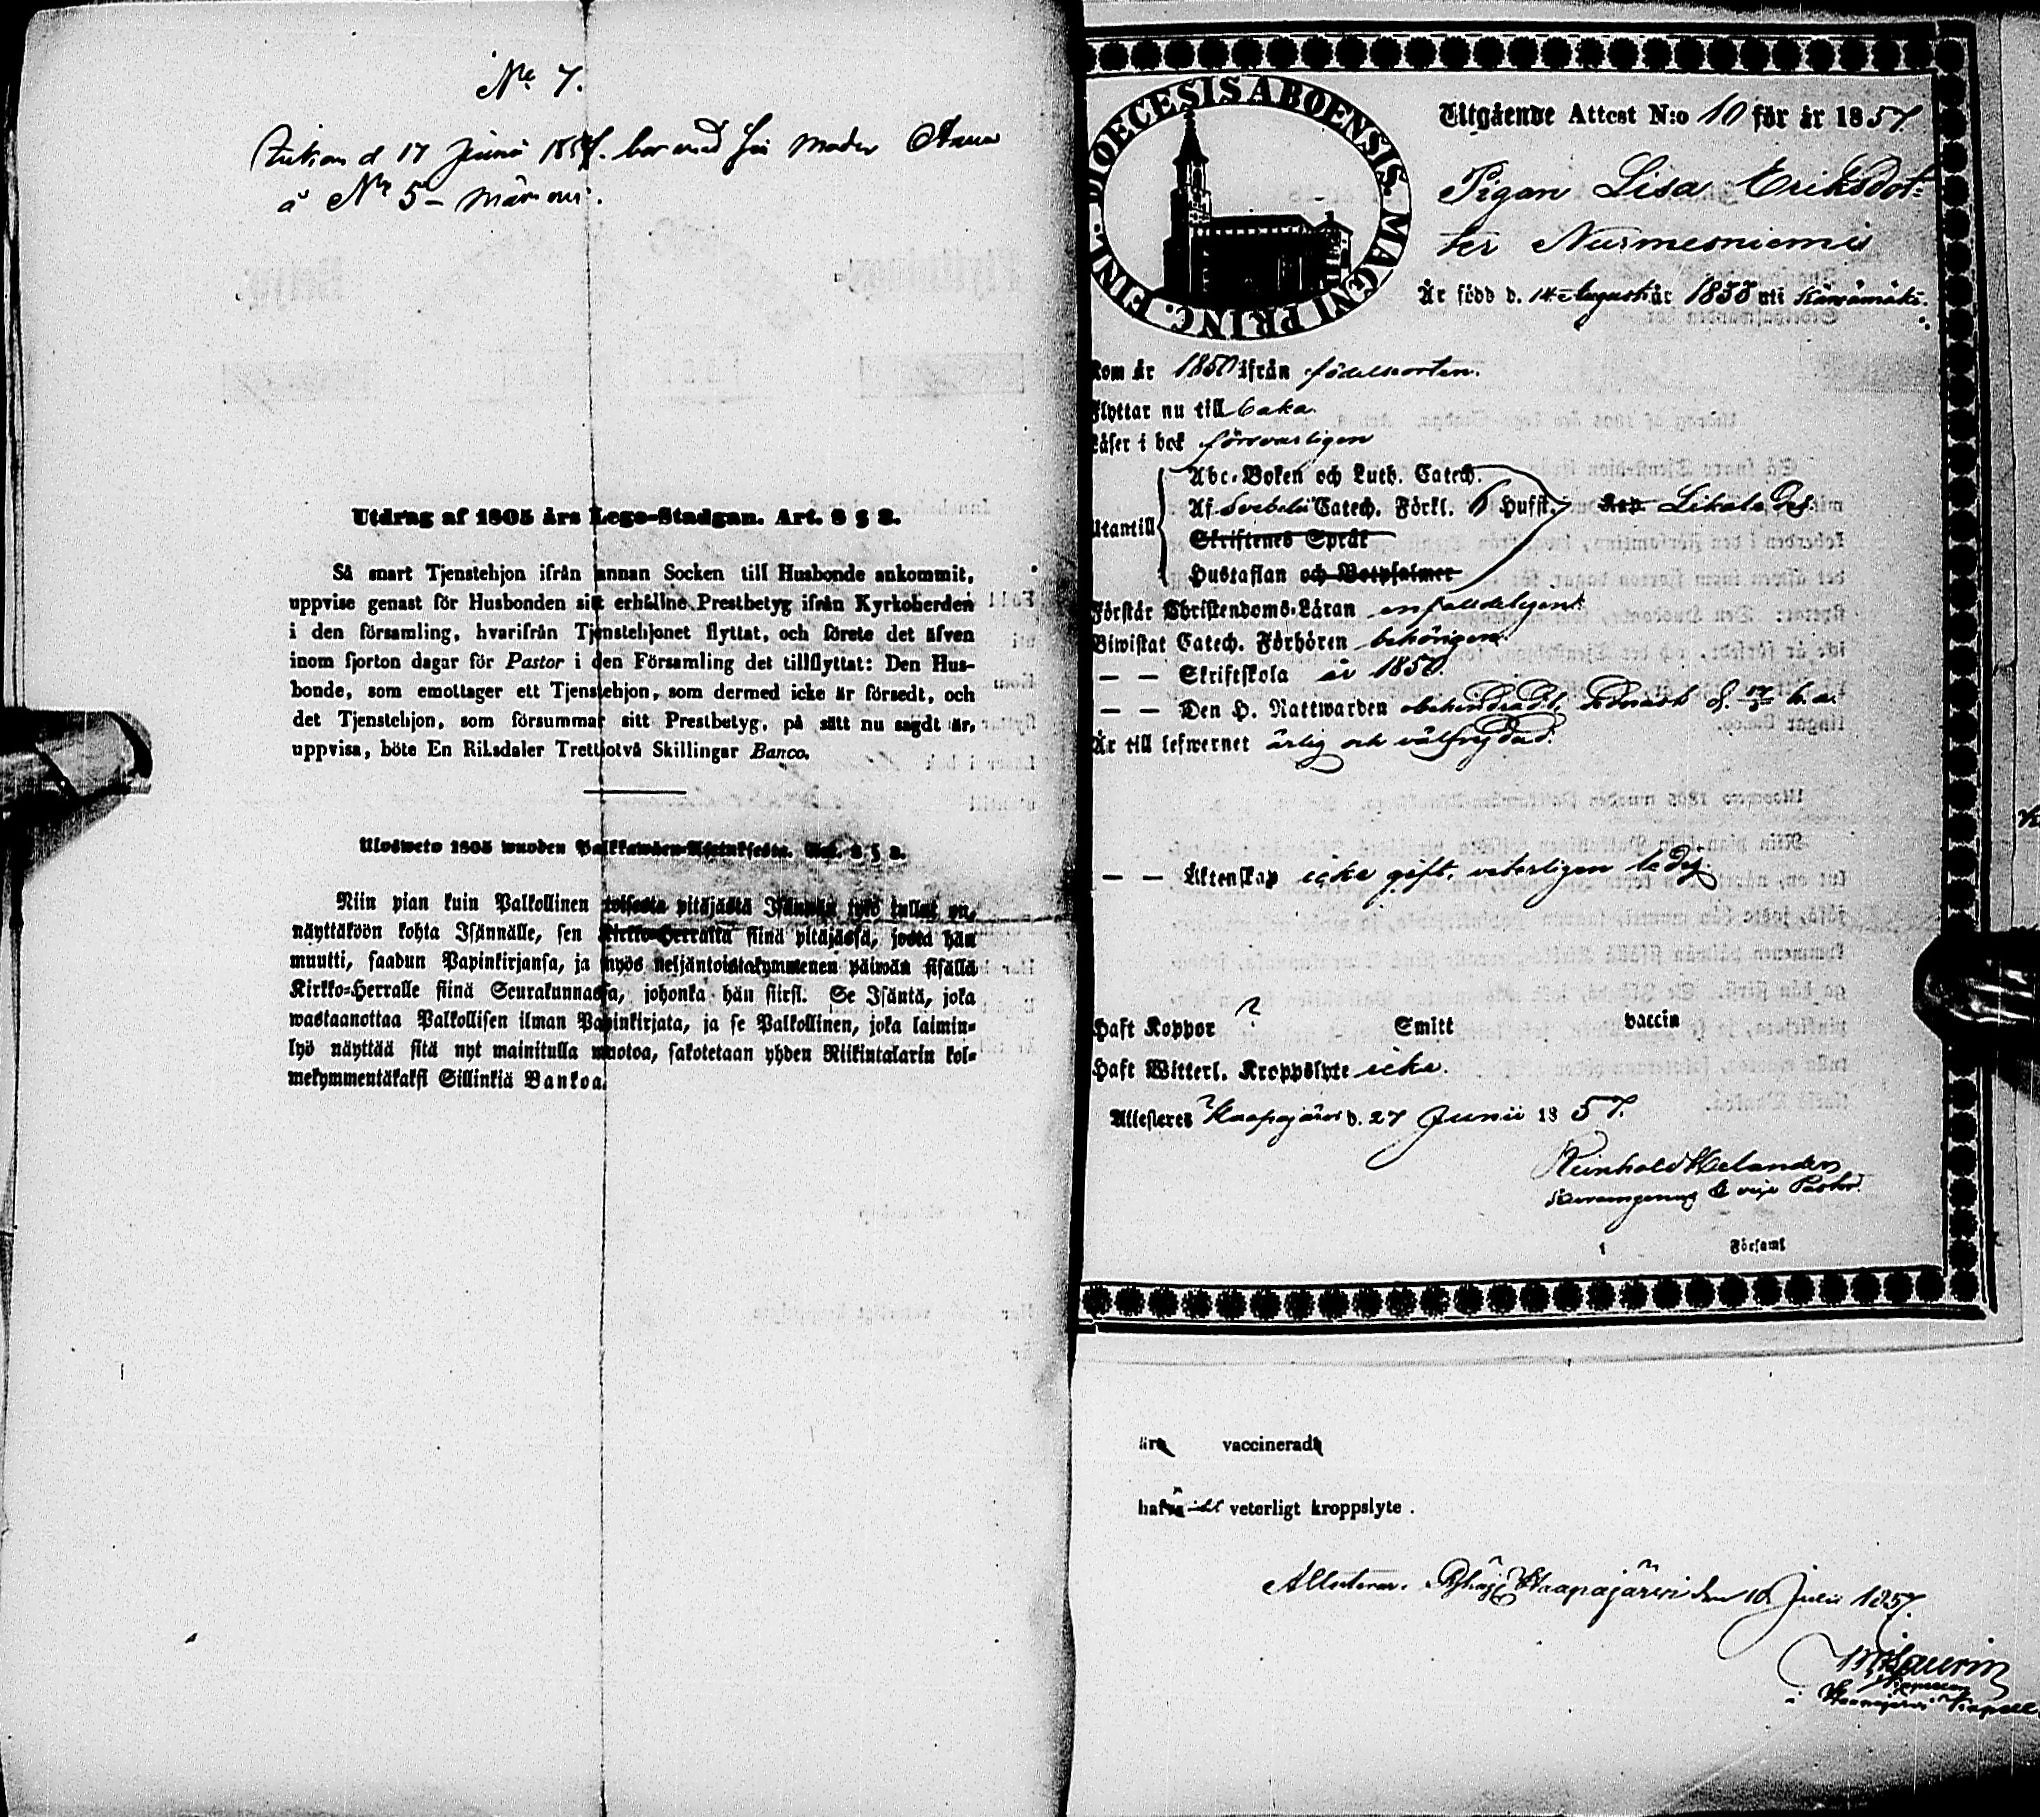 No 7.
d 17 Junii 1857. bor med sin moder Anna
å No 5
Utdrag af 1805 års Lego-Stadgan. Art. 8 § 8.
Så snart Tjenstehjon ifrån annan Socken till Husbonde ankommit,
uppvise genast för Husbonden sitt erhållne Prestbetyg ifrån Kyrkoherden
i den församling, hvarifrån Tjenstehjonet flyttat, och förete det äfven
inom fjorton dagar för Pastor i den Församling det tillflyttat: Den Hus-
bonde, som emottager ett Tjenstehjon, som dermed icke är försedt, och
det Tjenstehjon, som försummar sitt Prestbetyg, på sätt nu sagdt är,
uppvisa, böte En Riksdaler Trettiotvå Skillingar Banco.
Ulosweto 1805 wuoden Palkkawäen-Asetuksesta. Art. 8 § 8.
Niin pian kuin Palkollinen toisesta pitäjästä Isännän työ tullut on,
näyttäköön kohta Isännälle, sen Kirkko-Herralta siinä pitäjässä, josta hän
muutti, saadun Papinkirjansa, ja myös neljäntoistakymmenen päiwän sisällä
Kirkko-Herralle siinä Seurakunnassa, johonka hän siirsi. Se Isäntä, joka
wastaanottaa Palkollisen ilman Papinkirjata, ja se Palkollinen, joka laimin-
lyö näyttää sitä nyt mainitulla muotoa, sakotetaan yhden Riikintalarin kol-
mekymmentäkaksi Sillinkiä Bankoa.
DIOECESIS ABOENSIS. MAGNI PRINC. FINL.
Utgående Attest N:o 10 för år 1857.
Pigan Lisa Eriksdot-
ter Nurmesniemi
Är född d. 14 Augusti år 1833 uti Kärsämäki.
Kom år 1850 ifrån födelseorten.
Flyttar nu tillbaka.
Läser i bok försvarligen
Utantill
Abc-Boken och Luth. Catech.
Af Svebelii Catech. Förkl. 6 Hufst. Likaledes.
Skriftenes Språk
Hustaflan och Botpsalmer
Förstår Christendoms-Läran enfaldeligen.
Biwistat Catech. Förhören behörigen
— — Skriftskola år 1850.
— — Den H. Nattwarden obehindradt,
Är till lefwernet ärlig och välfrejdad.
— — Äktenskap icke gift, veterligen ledig.
Haft Koppor ? Smitt vaccin
Haft Witterl. Kroppslyte icke.
Attesteres Haapajärvi d. 27 Junii 1857.
Reinhold Helander
v. Pastor.
i Församl
äro vaccinerade
hafva veterligt kroppslyte .
Attesterar. Pyhäj. Haapajärvi den 10 Julii 1857.
i Haapajärvi Kapell